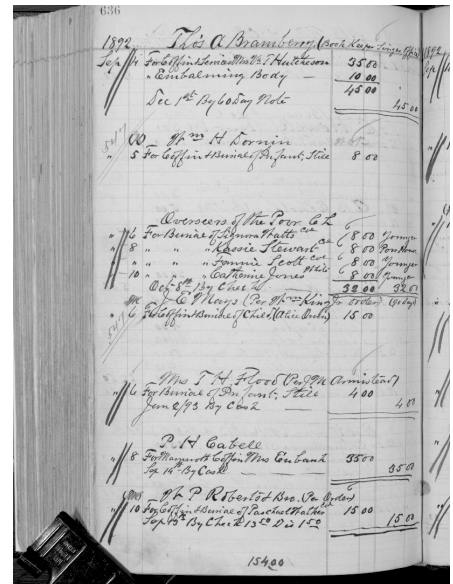 636
1892 Tho's A Bramberry (Book Keeper Singer Office)
Sep 4 For Coffin & Services Mrs B. T Hutcheson 35 00
" Embalming Body — 10 00
45 00
Dec 1st By 60 Day Note 45 00
547
OO Wm H Dornin
" 5 For Coffin & Burial of Infant, Still 8 00
Overseers of the Poor C. L
" 6 For Burial of Signora Watts Col 8 00 Younger
" 8 " " " Kassie Stewart Col 8 00
" " " " Fannie Scott Col 8 00 Younger
" 10 " " " Catherine Jones White 8 00 Younger
Oct 8th By Check 32 00 32 00
J. E. Mays (Per Wm King Jr order)
547
" 6 For Coffin & Burial of Child, 15 00
Mrs T. H. Flood (Per Armistead)
" 6 For Burial of Infant, Still 4 00
Jan 2/93 By Cash 4 00
P. H Cabell
" 8 For Mammoth Coffin Mrs Eubank 35 00
Sep 14th By Cash — 35 00
W. P Roberts & Bro. (Per Order)
" 10 For Coffin & Burial of Paschal Walker Col 15 00
By Check 13 50 Dis 1 50 15 00
154 00